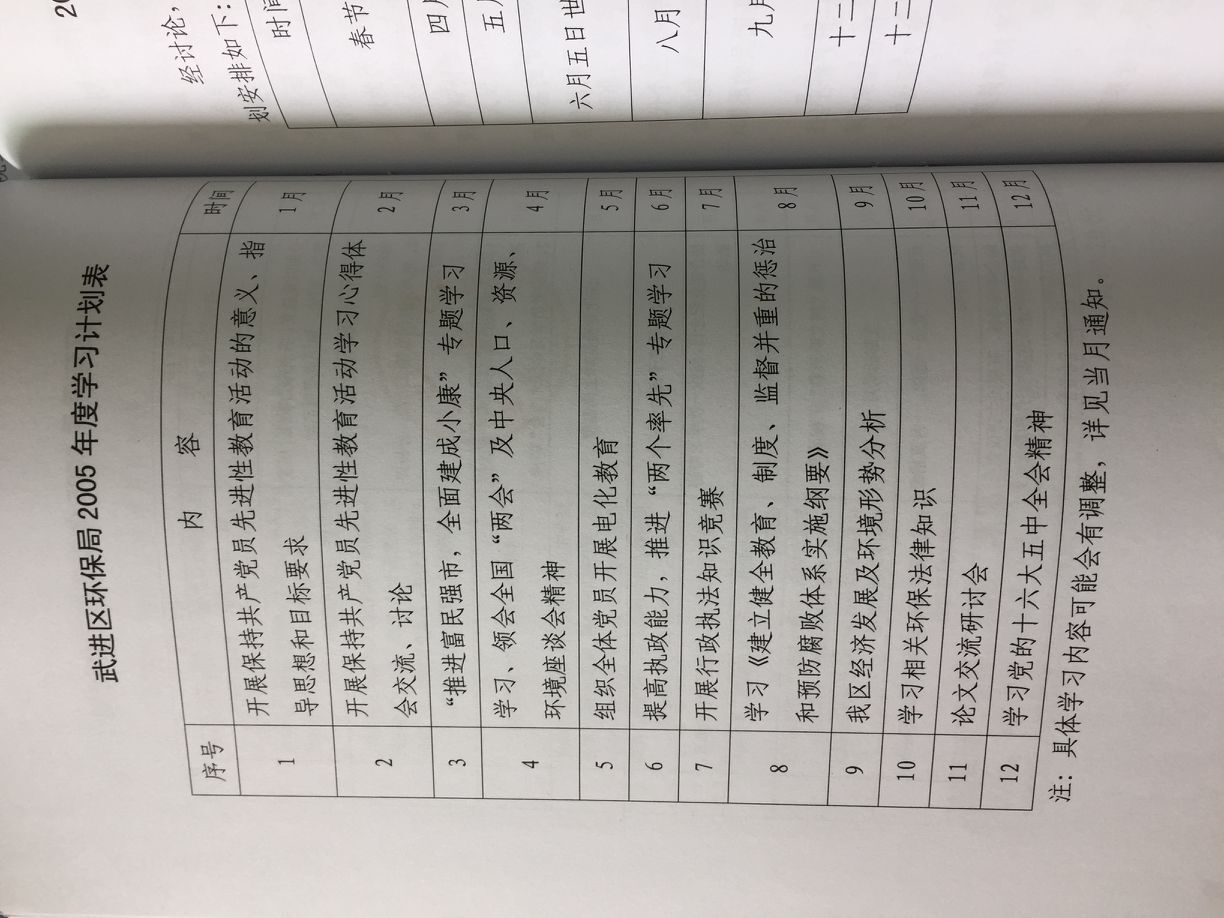 武进区环保局2005年度学习计划表
序号 内容 时间
1 开展保持共产党员先进性教育活动的意义、指 1月
导思想和目标要求
2 开展保持共产党员先进性教育活动学习心得体 2月
会交流、讨论
3 “推进富民强市，全面建成小康”专题学习 3月
4 学习、领会全国“两会”及中央人口、资源、 4月
环境座谈会精神
5 组织全体党员开展电化教育 5月
6 提高执政能力，推进“两个率先”专题学习 6月
7 开展行政执法知识竞赛 7月
8 学习《建立健全教育、制度、监督并重的惩治 8月
和预防腐败体系实施纲要》
9 我区经济发展及环境形势分析 9月
10 学习相关环保法律知识 10月
11 论文交流研讨会 11月
12 学习党的十六大五中全会精神 12月
注：具体学习内容可能会有调整，详见当月通知。
20
经讨论，
划安排如下：
时间
春节
四月
五月
六月五日世
八月
九月
十二
十二